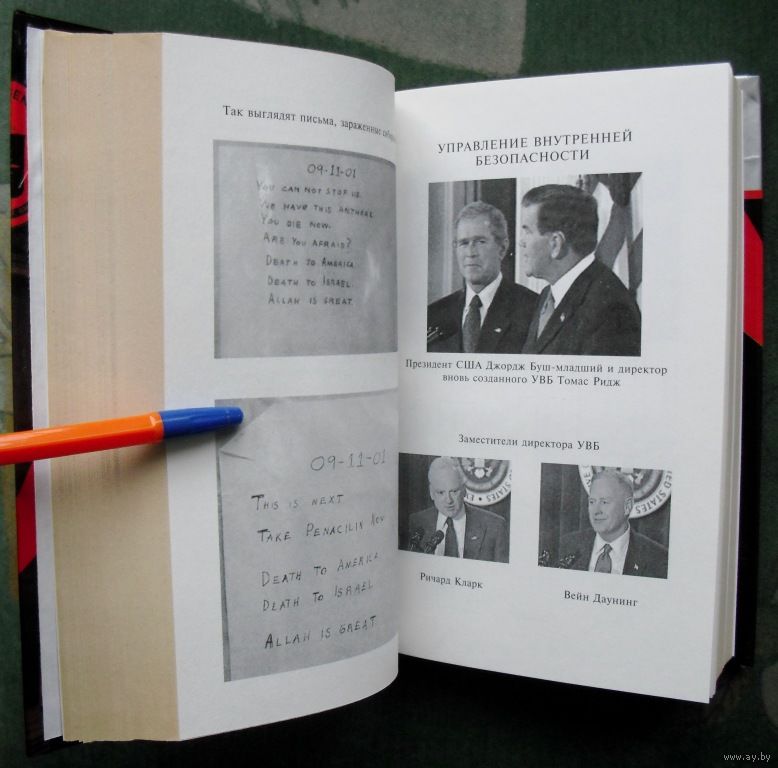 Так выглядят письма, зараженные
09-11-01
YOU CAN NOT STOP US.
WE HAVE THIS ANTHRAX.
YOU DIE NOW.
ARE YOU AFRAID?
DEATH TO AMERICA.
DEATH TO ISRAEL.
ALLAH IS GREAT.
09-11-01
THIS IS NEXT
TAKE PENACILIN NOW
DEATH TO AMERICA
DEATH TO ISRAEL
ALLAH IS GREAT
УПРАВЛЕНИЕ ВНУТРЕННЕЙ
БЕЗОПАСНОСТИ
Президент США Джордж Буш-младший и директор
вновь созданного УВБ Томас Ридж
Заместители директора УВБ
STATES
ED STATES
Ричард Кларк
Вейн Даунинг
www.ay.by